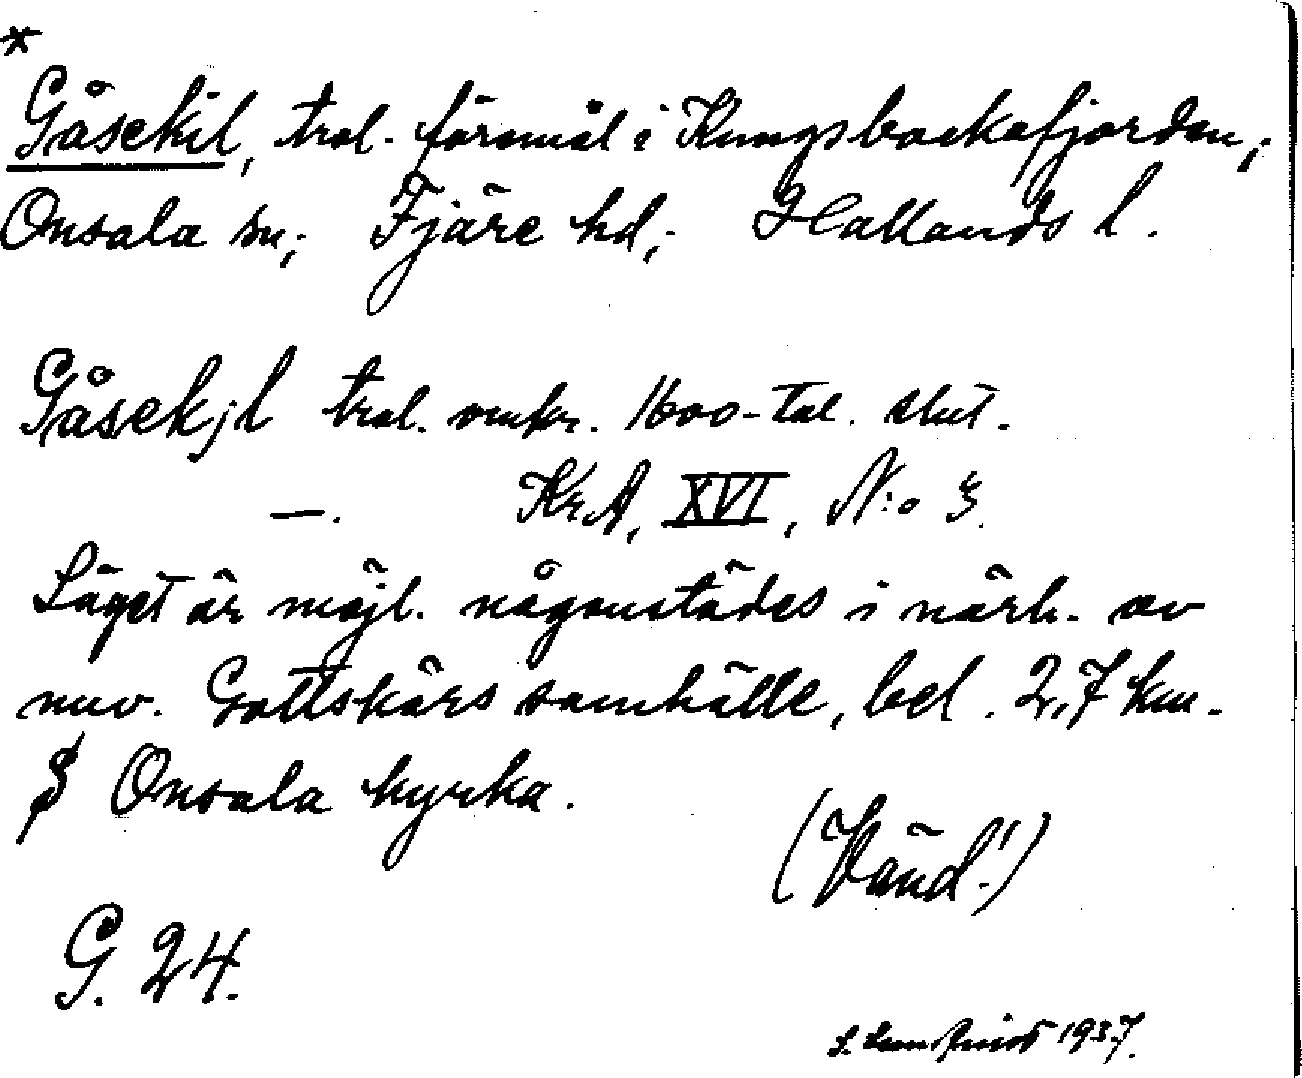 *
Gåsekil, trol. föremål i Kungsbackafjorden,
Onsala sn; Fjäre hd,; Hallands l.
Gåsekjl trol. omkr. 1600-tal. slut.
—. KrA, XVI, N:o 3.
Läget är möjl. någonstädes i närh. av
nuv. Gottskärs samhälle, bel. 2,7 km.
S Onsala kyrka.
(Vänd!)
G. 24.
1937.